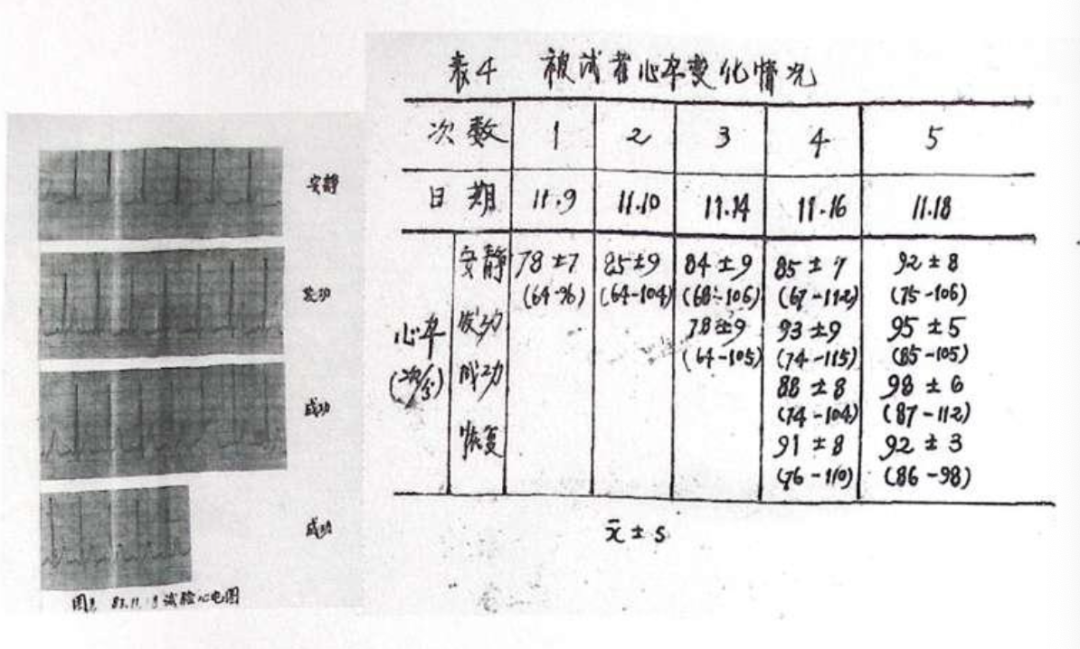 安静
发功
成功
成功
试验心电图
表4 被试者心率变化情况
次数 1 2 3 4 5
日期 11.9 11.10 11.14 11.16 11.18
心率(次/分)
安静 78±7 85±9 84±9 85±7 92±8
(64-96) (64-104) (68-106) (67-112) (75-106)
发功 78±9 93±9 95±5
(64-105) (74-115) (85-105)
成功 88±8 98±6
(74-104) (87-112)
恢复 91±8 92±3
(76-110) (86-98)
x̄±s